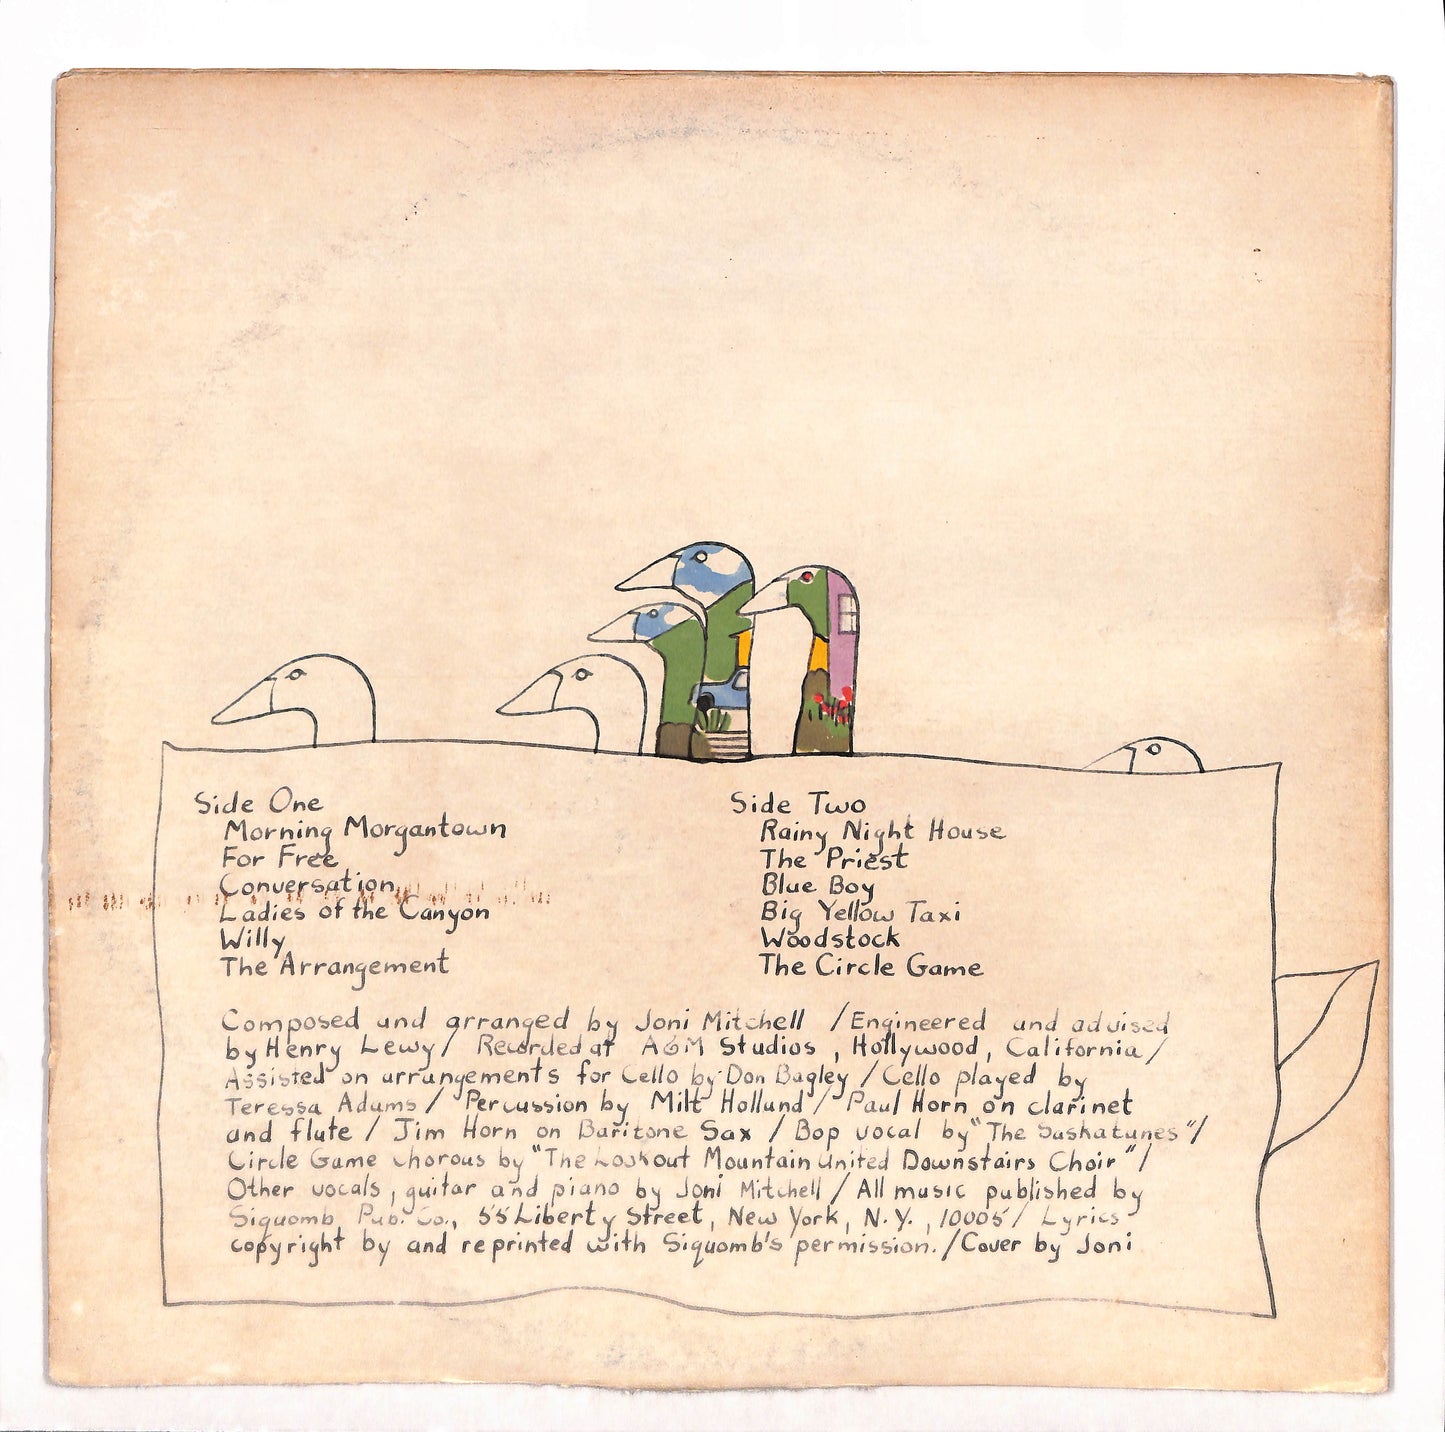 Side One
Morning Morgantown
For Free
Conversation
Ladies of the Canyon
Willy
The Arrangement
Side Two
Rainy Night House
The Priest
Blue Boy
Big Yellow Taxi
Woodstock
The Circle Game
Composed and arranged by Joni Mitchell / Engineered and advised
by Henry Lewy / Recorded at A&M Studios , Hollywood , California /
Assisted on arrangements for Cello by Don Bagley / Cello played by
Teressa Adams / Percussion by Milt Holland / Paul Horn on clarinet
and flute / Jim Horn on Baritone Sax / Bop vocal by "The Saskatunes" /
Circle Game chorous by "The Lookout Mountain United Downstairs Choir" /
Other vocals , guitar and piano by Joni Mitchell / All music published by
Siquomb Pub. Co., 55 Liberty Street , New York , N.Y. , 10005 / Lyrics
copyright by and reprinted with Siquomb's permission. / Cover by Joni